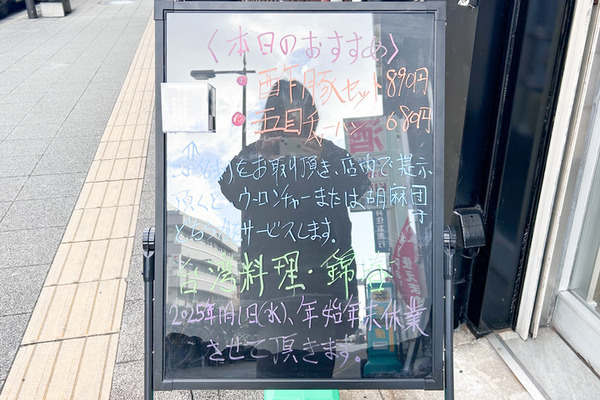 〈本日のおすすめ〉
酢豚セット 890円
五目チャーハン 680円
をお取り頂き、店内で提示
頂くと、ウーロンチャーまたは胡麻団
サービスします。
台湾料理・錦
2025年1月1日(水)、年始年末休業
させて頂きます。
酒